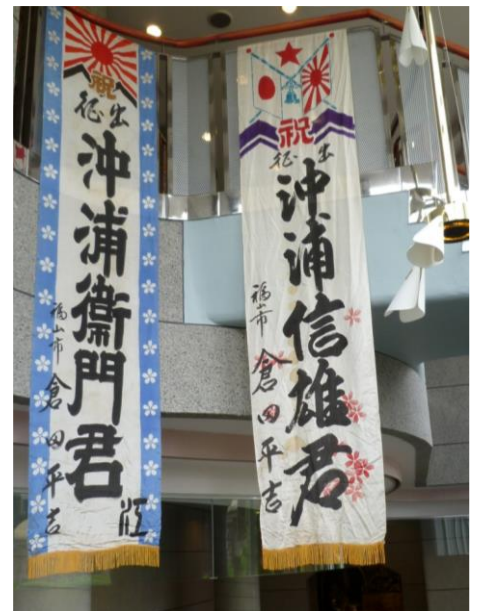 祝
出征
沖浦信雄君
福山市 倉田平吉
祝
出征
沖浦衞門君
福山市 倉田平吉